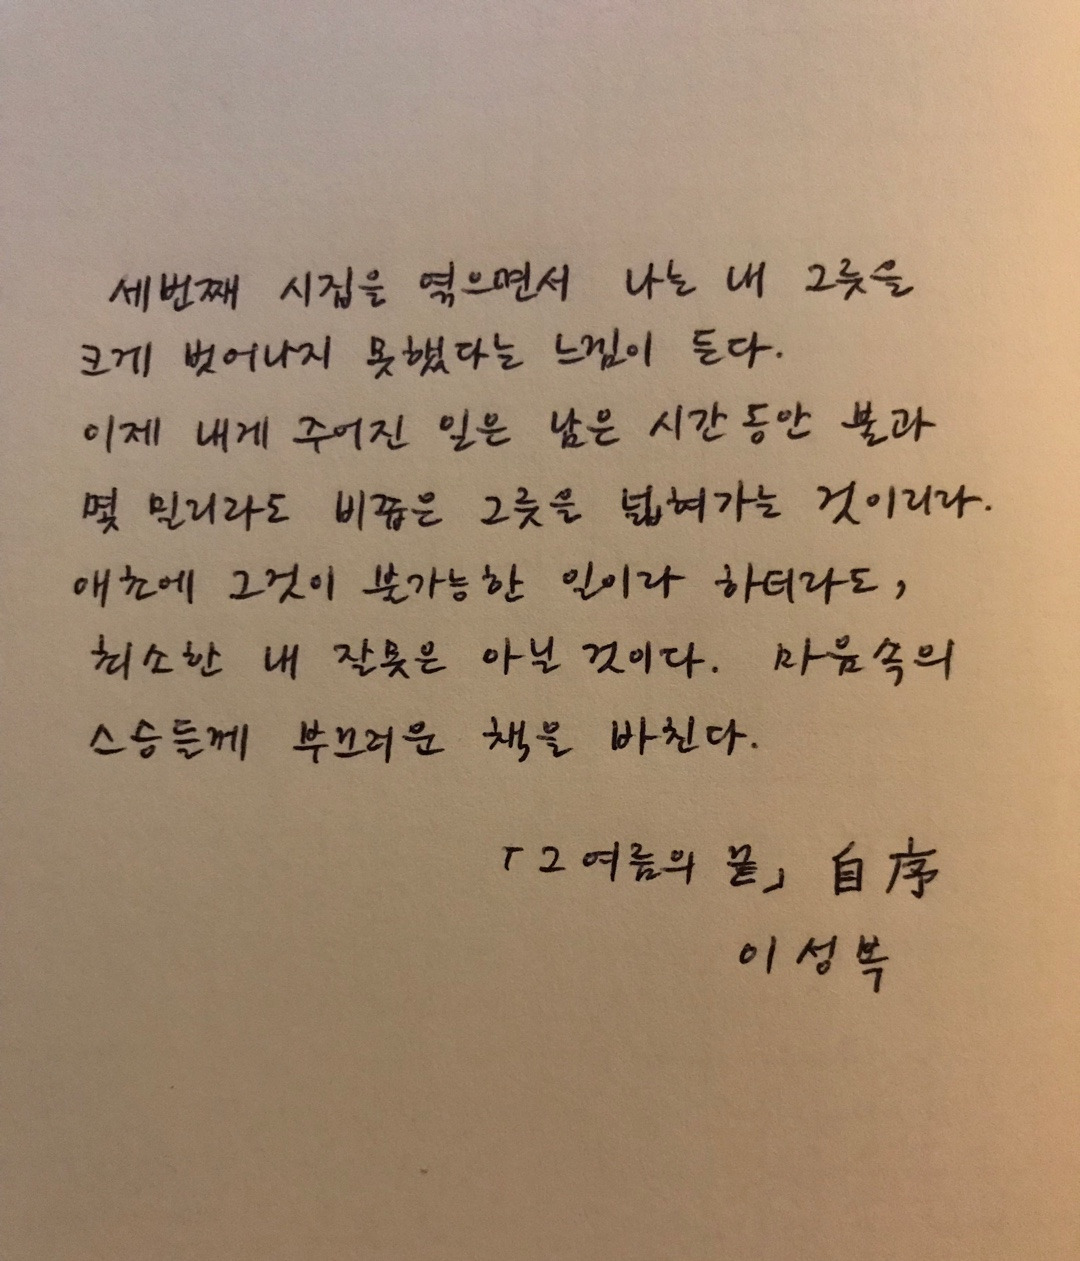 세번째 시집을 엮으면서 나는 내 그릇을
크게 벗어나지 못했다는 느낌이 든다.
이제 내게 주어진 일은 남은 시간 동안 불과
몇 밀리라도 비좁은 그릇을 넓혀가는 것이리라.
애초에 그것이 불가능한 일이라 하더라도,
최소한 내 잘못은 아닐 것이다. 마음속의
스승들께 부끄러운 책을 바친다.
「그 여름의 끝」 自序
이성복